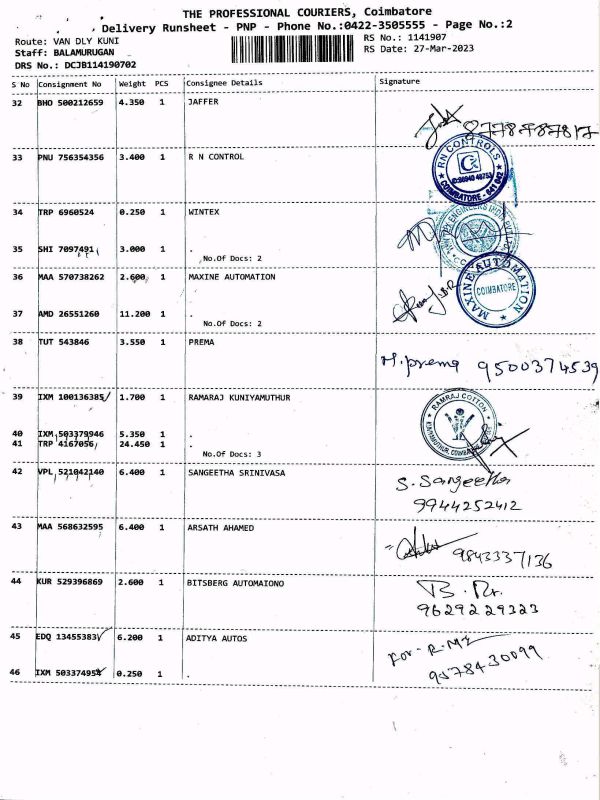 THE PROFESSIONAL COURIERS, Coimbatore
Delivery Runsheet - PNP - Phone No.:0422-3505555 - Page No.:2
Route: VAN DLY KUNI
Staff: BALAMURUGAN
DRS No.: DCJB114190702
RS No.: 1141907
RS Date: 27-Mar-2023
S No Consignment No Weight PCS Consignee Details Signature
32 BHO 500212659 4.350 1 JAFFER
8778787817
33 PNU 756354356 3.400 1 R N CONTROL
RN CONTROLS
COIMBATORE - 641 042
34 TRP 6960524 0.250 1 WINTEX
35 SHI 7097491 3.000 1 .
No.Of Docs: 2
36 MAA 570738262 2.600 1 MAXINE AUTOMATION
MAXINE AUTOMATION
COIMBATORE
37 AMD 26551260 11.200 1 .
No.Of Docs: 2
38 TUT 543846 3.550 1 PREMA
M.prema 9500374539
39 IXM 100136385 1.700 1 RAMARAJ KUNIYAMUTHUR
RAMRAJ COTTON
40 IXM 503379946 5.350 1 .
41 TRP 4167056 24.450 1 .
No.Of Docs: 3
42 VPL 521042140 6.400 1 SANGEETHA SRINIVASA
S. Sangeetha
9944252412
43 MAA 568632595 6.400 1 ARSATH AHAMED
9843337136
44 KUR 529396869 2.600 1 BITSBERG AUTOMAIONO
9629229323
45 EDQ 13455383 6.200 1 ADITYA AUTOS
For-R.M
9578430099
46 IXM 503374954 0.250 1 .